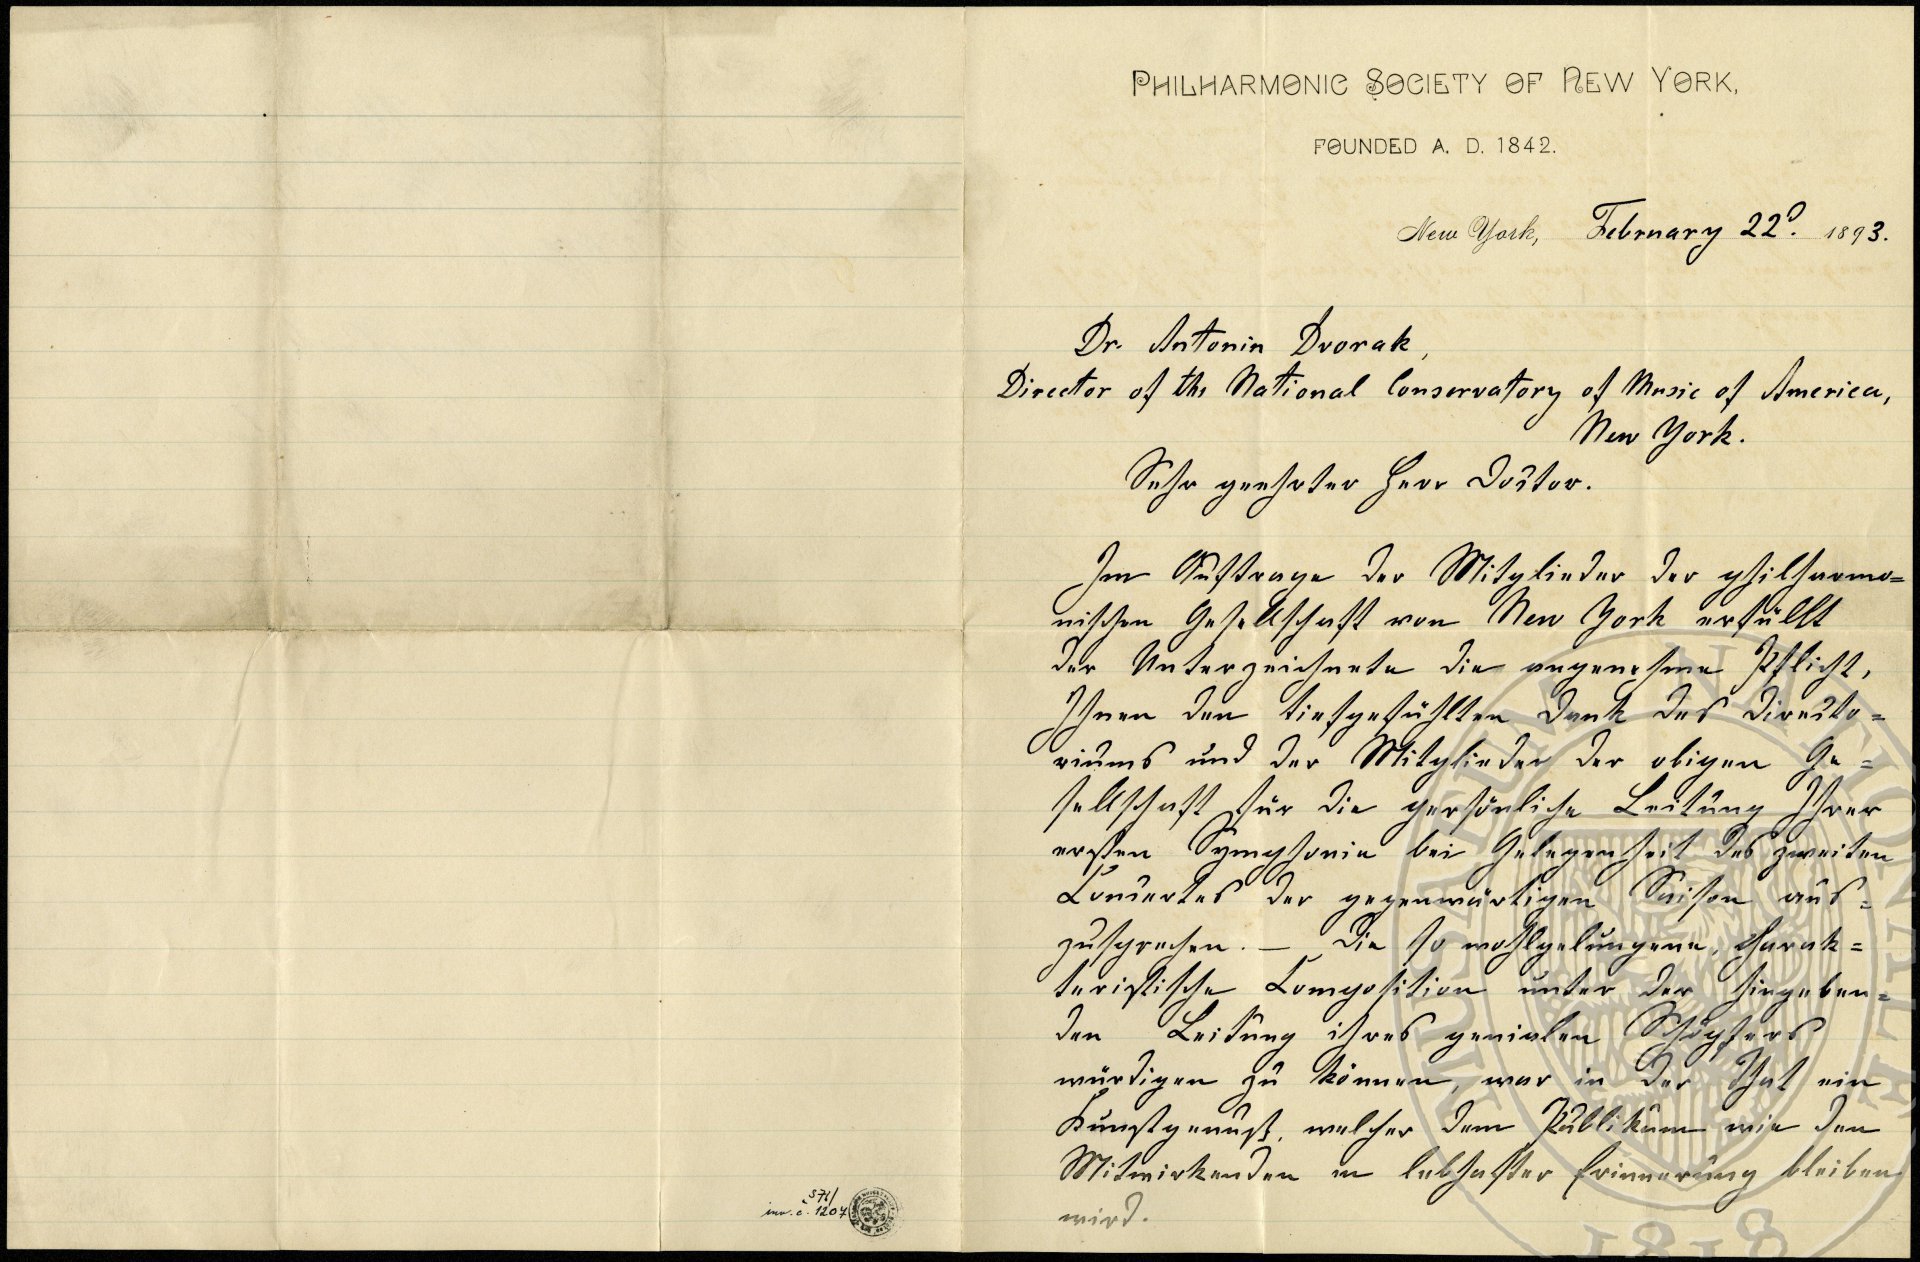 PHILHARMONIC SOCIETY OF NEW YORK,
FOUNDED A. D. 1842.
New York, February 22d. 1893.
Dr. Antonin Dvorak,
Director of the National Conservatory of Music of America,
New York.
Sehr geehrter Herr Doctor.
Im Auftrage der Mitglieder der philharmo=
nischen Gesellschaft von New York erfüllt
der Unterzeichnete die angenehme Pflicht,
Ihnen den tiefgefühlten Dank des Directo=
riums und der Mitglieder der obigen Ge=
sellschaft für die persönliche Leitung Ihrer
ersten Symphonie bei Gelegenheit des zweiten
Concertes der gegenwärtigen Saison aus=
zusprechen. — Die so wohlgelungene, charak=
teristische Composition unter der hingeben=
den Leitung ihres genialen Schöpfers
würdigen zu können, war in der That ein
Kunstgenuß, welcher dem Publikum wie den
Mitwirkenden in lebhafter Erinnerung bleiben
wird.
S76/
inv. č. 1207
MUSAEUM NATIONALE
1818